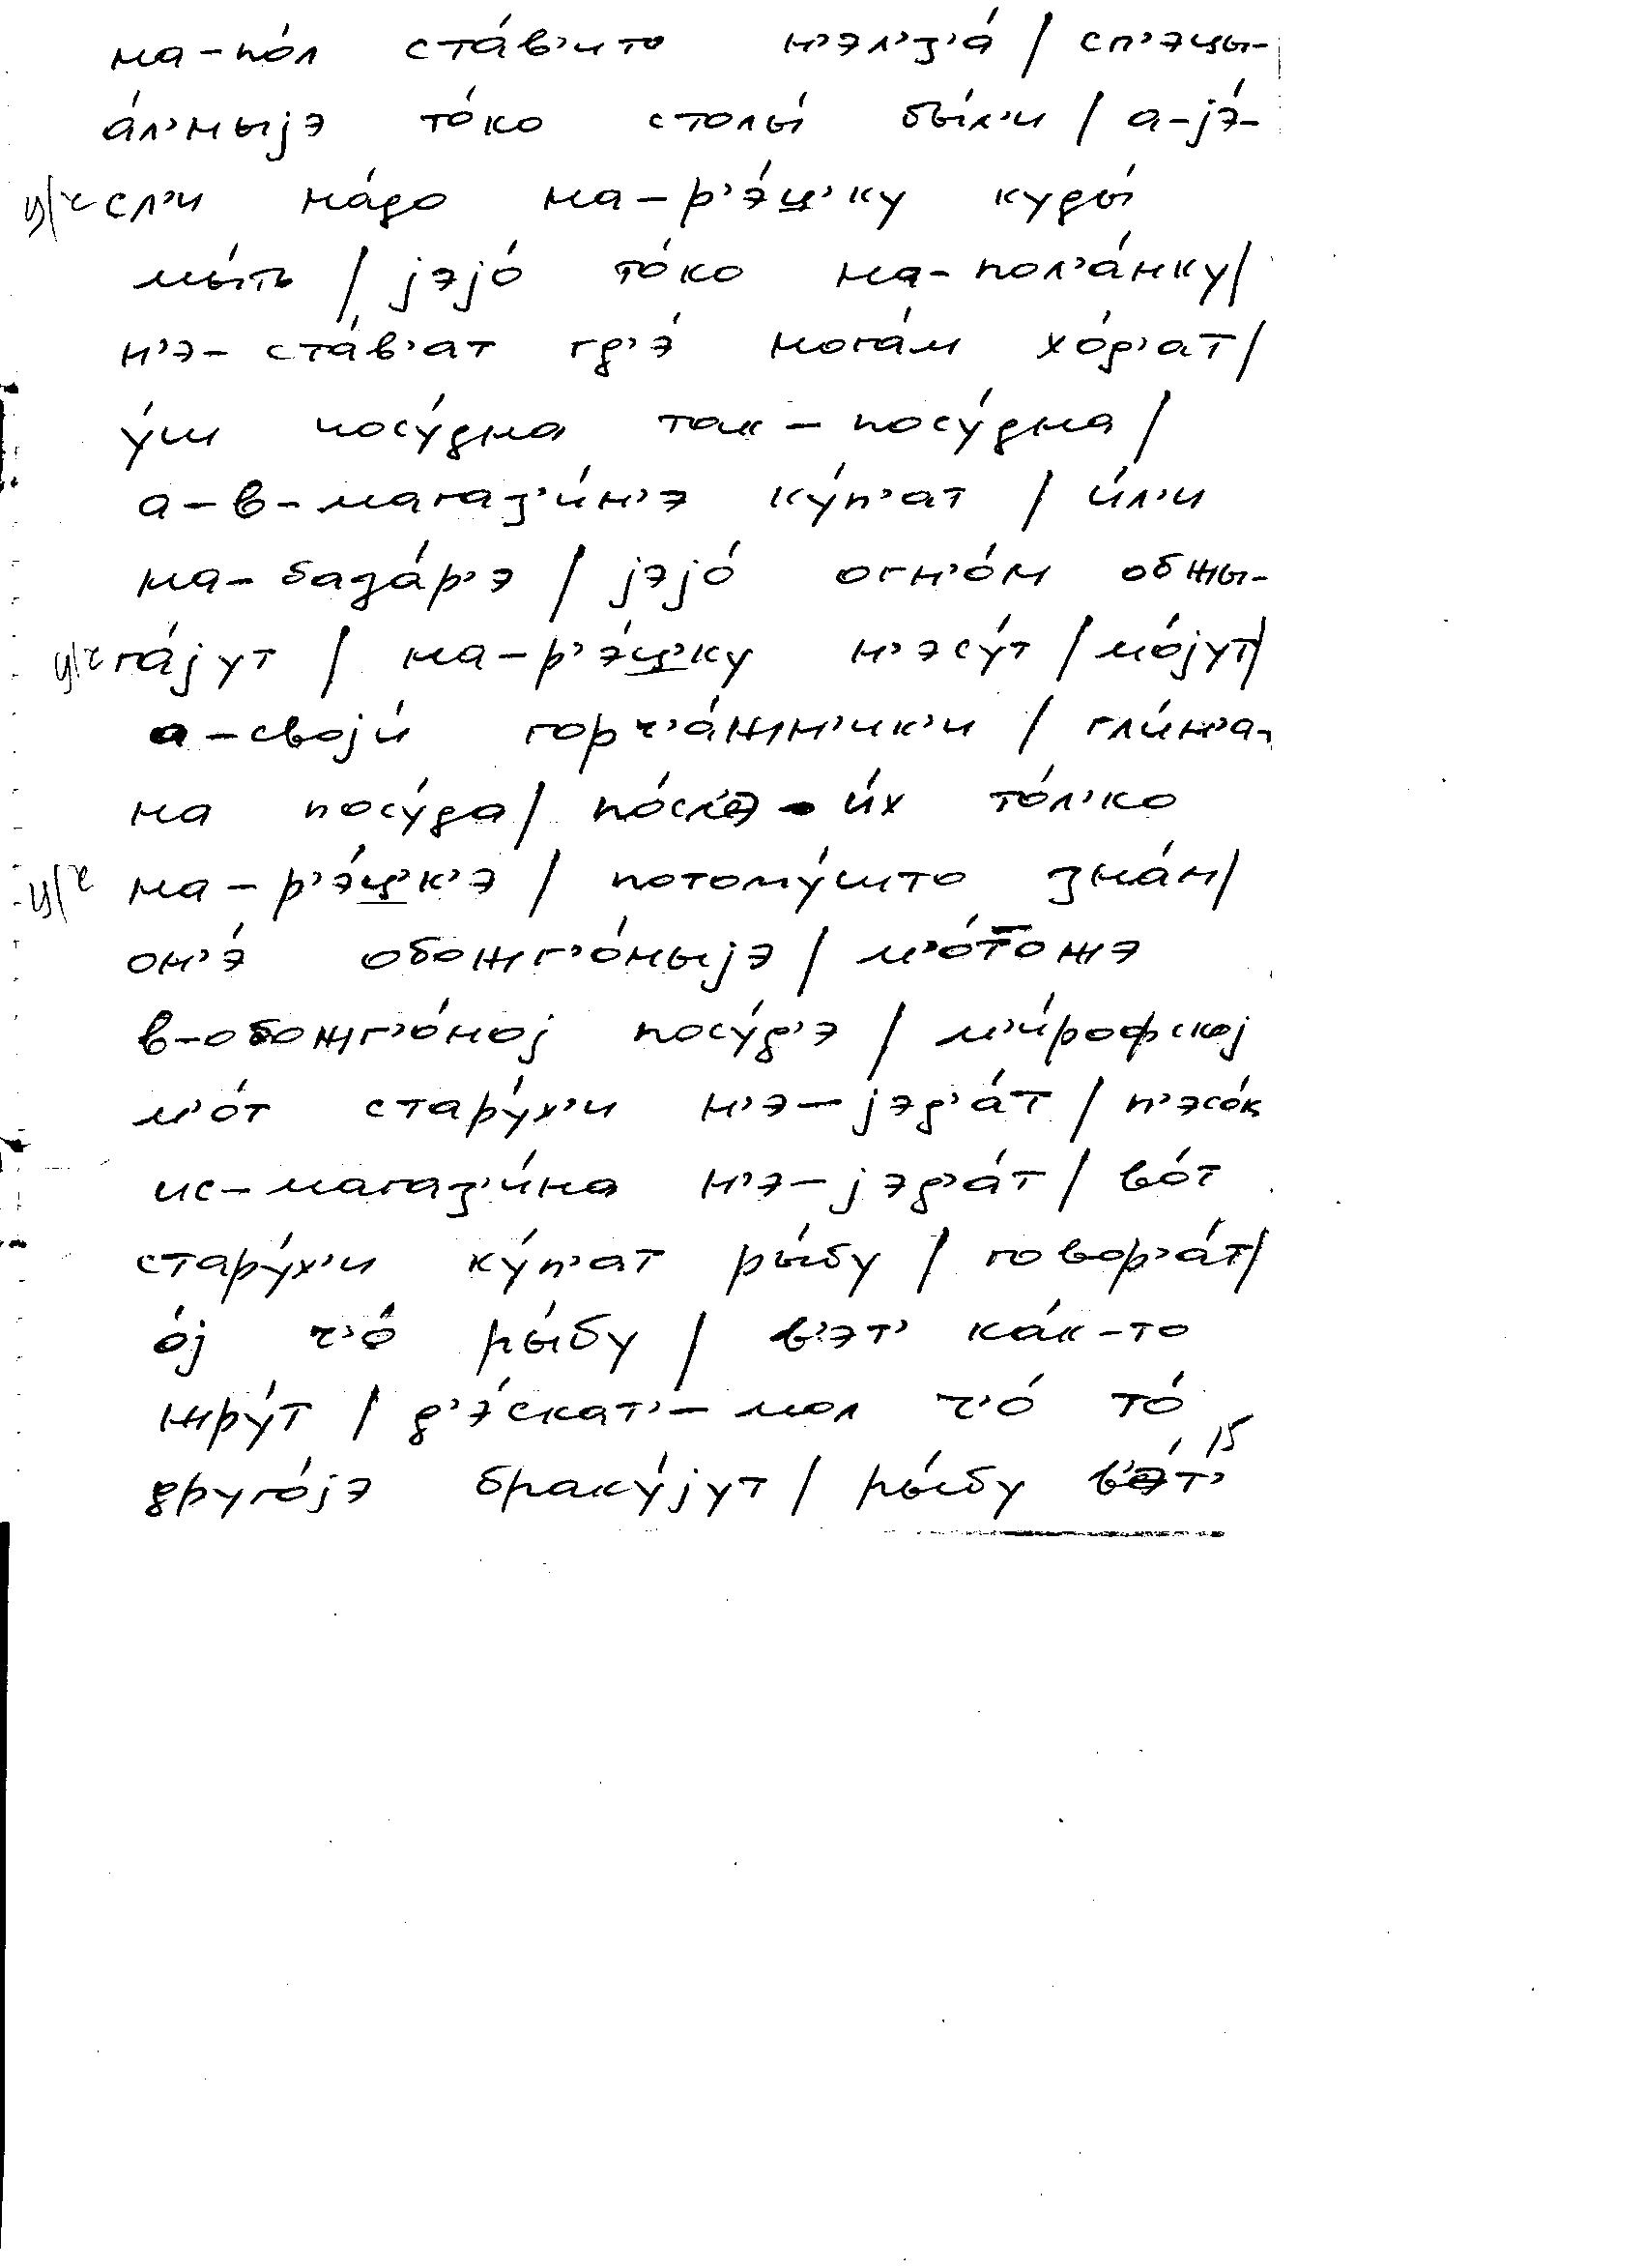 на-по́л ста́в'ито н'эл'з'а́ / сп'эцы-
а́л'ныjэ то́ко столы́ бы́л'и / а-jэ́-
ц/ч сл'и на́до на-р'э́ц'ку куды́
мы́ть / jэjо́ то́ко на-пол'а́нку/
н'э-ста́в'ат гд'э́ нога́м хо́д'ат/
у́ш посу́дна так-посу́дна/
а-в-магаз'и́н'э ку́п'ат / и́л'и
на-база́р'э / jэjо́ огн'о́м обжы-
ц/ч га́jут / на-р'э́ц'ку н'эсу́т / мо́jут/
а-своjи́ горч'а́жн'ик'и / гли́н'а-
на посу́да/ по́сл'э-и́х то́л'ко
ц/ч на-р'э́ц'к'э / потому́што зна́н/
он'э́ обожг'о́ныjэ / м'о́тожэ
в-обожг'о́ноj посу́д'э / м'и́рофскоj
м'о́т стару́х'и н'э-jэд'а́т / п'эсо́к
ис-магаз'и́на н'э-jэд'а́т / во́т
стару́х'и ку́п'ат ры́бу / говор'а́т/
о́j ч'о́ ры́бу / в'эт' ка́к-то
жру́т / д'э́скат'-мол ч'о́ то́
друго́jэ браку́jут / ры́бу в'э́т' 15